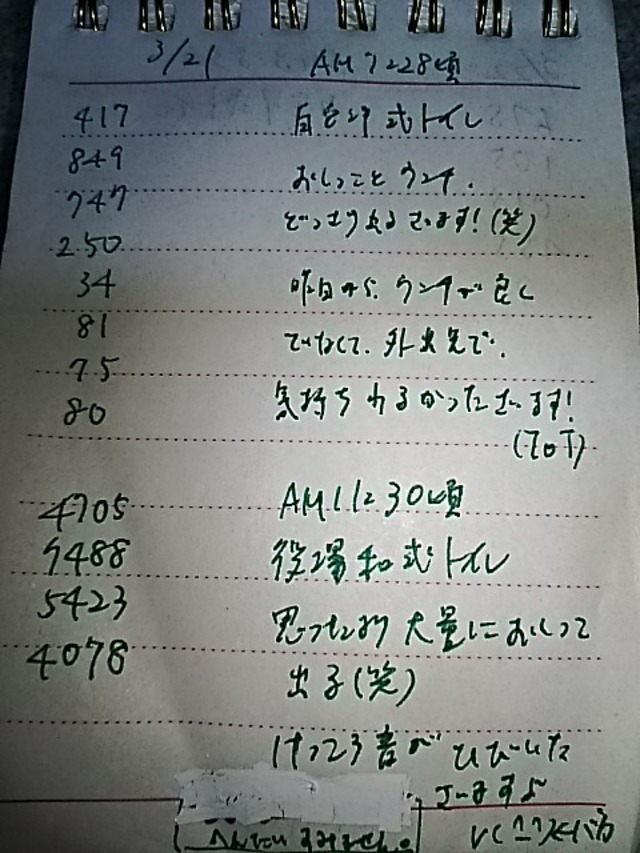 3/21 AM7:28頃
417 自宅洋式トイレ
849
おしっことウンチ.
747
どっさり出るさいます!(笑)
250
34 昨日から、ウンチが良く
81
でいなくて、外出先で、
75
80 気持ちわるかったさいます!
(ToT)
4705 AM11:30頃
7488 役場和式トイレ
5423 思ったより大量におしっこ
4078
出る(笑)
けっこう音がひびいた
さいますよ
へんたいすみません。